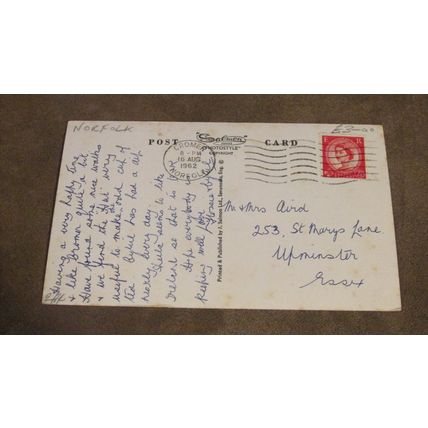 NORFOLK
£3-00
POST
"Cameracolour"
"PHOTOSTYLE"
COPYRIGHT
CARD
CROMER
8-PM
16 AUG
1962
NORFOLK
Having a very happy time
& like Cromer quite a bit
Have found some nice walks
& we find the flat very
useful to make odd cup of
tea. has had a dip
nearly every day.
seems to like
Ireland so that is
Hope everybody is
keeping well love
Printed & Published by J. Salmon Ltd., Sevenoaks, Eng. ©
Mr & Mrs Aird
253, St Marys Lane
Upminster
Essex